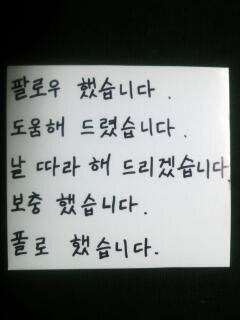 팔로우 했습니다.
도움해 드렸습니다.
날 따라 해 드리겠습니다.
보충 했습니다.
폴로 했습니다.